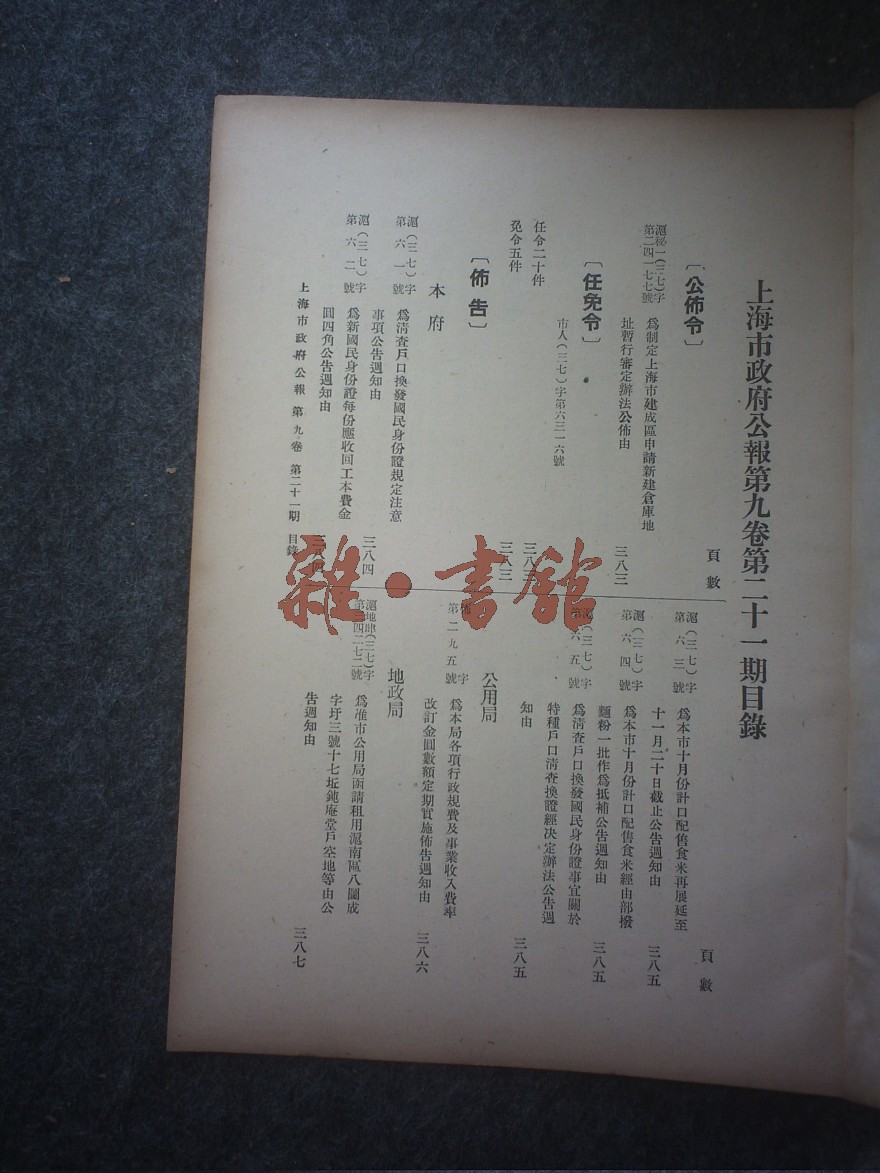 上海市政府公報第九卷第二十一期目錄
頁數
〔公佈令〕
滬秘一(三七)字
第二四一七七號
為制定上海市建成區申請新建倉庫地
址暫行審定辦法公佈由
三八三
〔任免令〕
市人(三七)字第六三一六號
任令二十件
三八三
免令五件
三八三
〔佈告〕
本府
滬(三七)字
第六一號
為清查戶口換發國民身份證規定注意
事項公告週知由
三八四
滬(三七)字
第六二號
為新國民身份證每份應收回工本費金
圓四角公告週知由
三八四
頁數
滬(三七)字
第六三號
為本市十月份計口配售食米再展延至
十一月二十日截止公告週知由
三八五
滬(三七)字
第六四號
為本市十月份計口配售食米經由部撥
麵粉一批作為抵補公告週知由
三八五
滬(三七)字
第六五號
為清查戶口換發國民身份證事宜關於
特種戶口清查換證經決定辦法公告週
知由
三八五
公用局
字
第二九五號
為本局各項行政規費及事業收入費率
改訂金圓數額定期實施佈告週知由
三八六
地政局
滬地肆(三七)字
第 四二七二號
為准市公用局函請租用滬南區八圖成
字圩三號十七坵鈍庵堂戶空地等由公
告週知由
三八七
上海市政府公報 第九卷 第二十一期 目錄
雜·書館